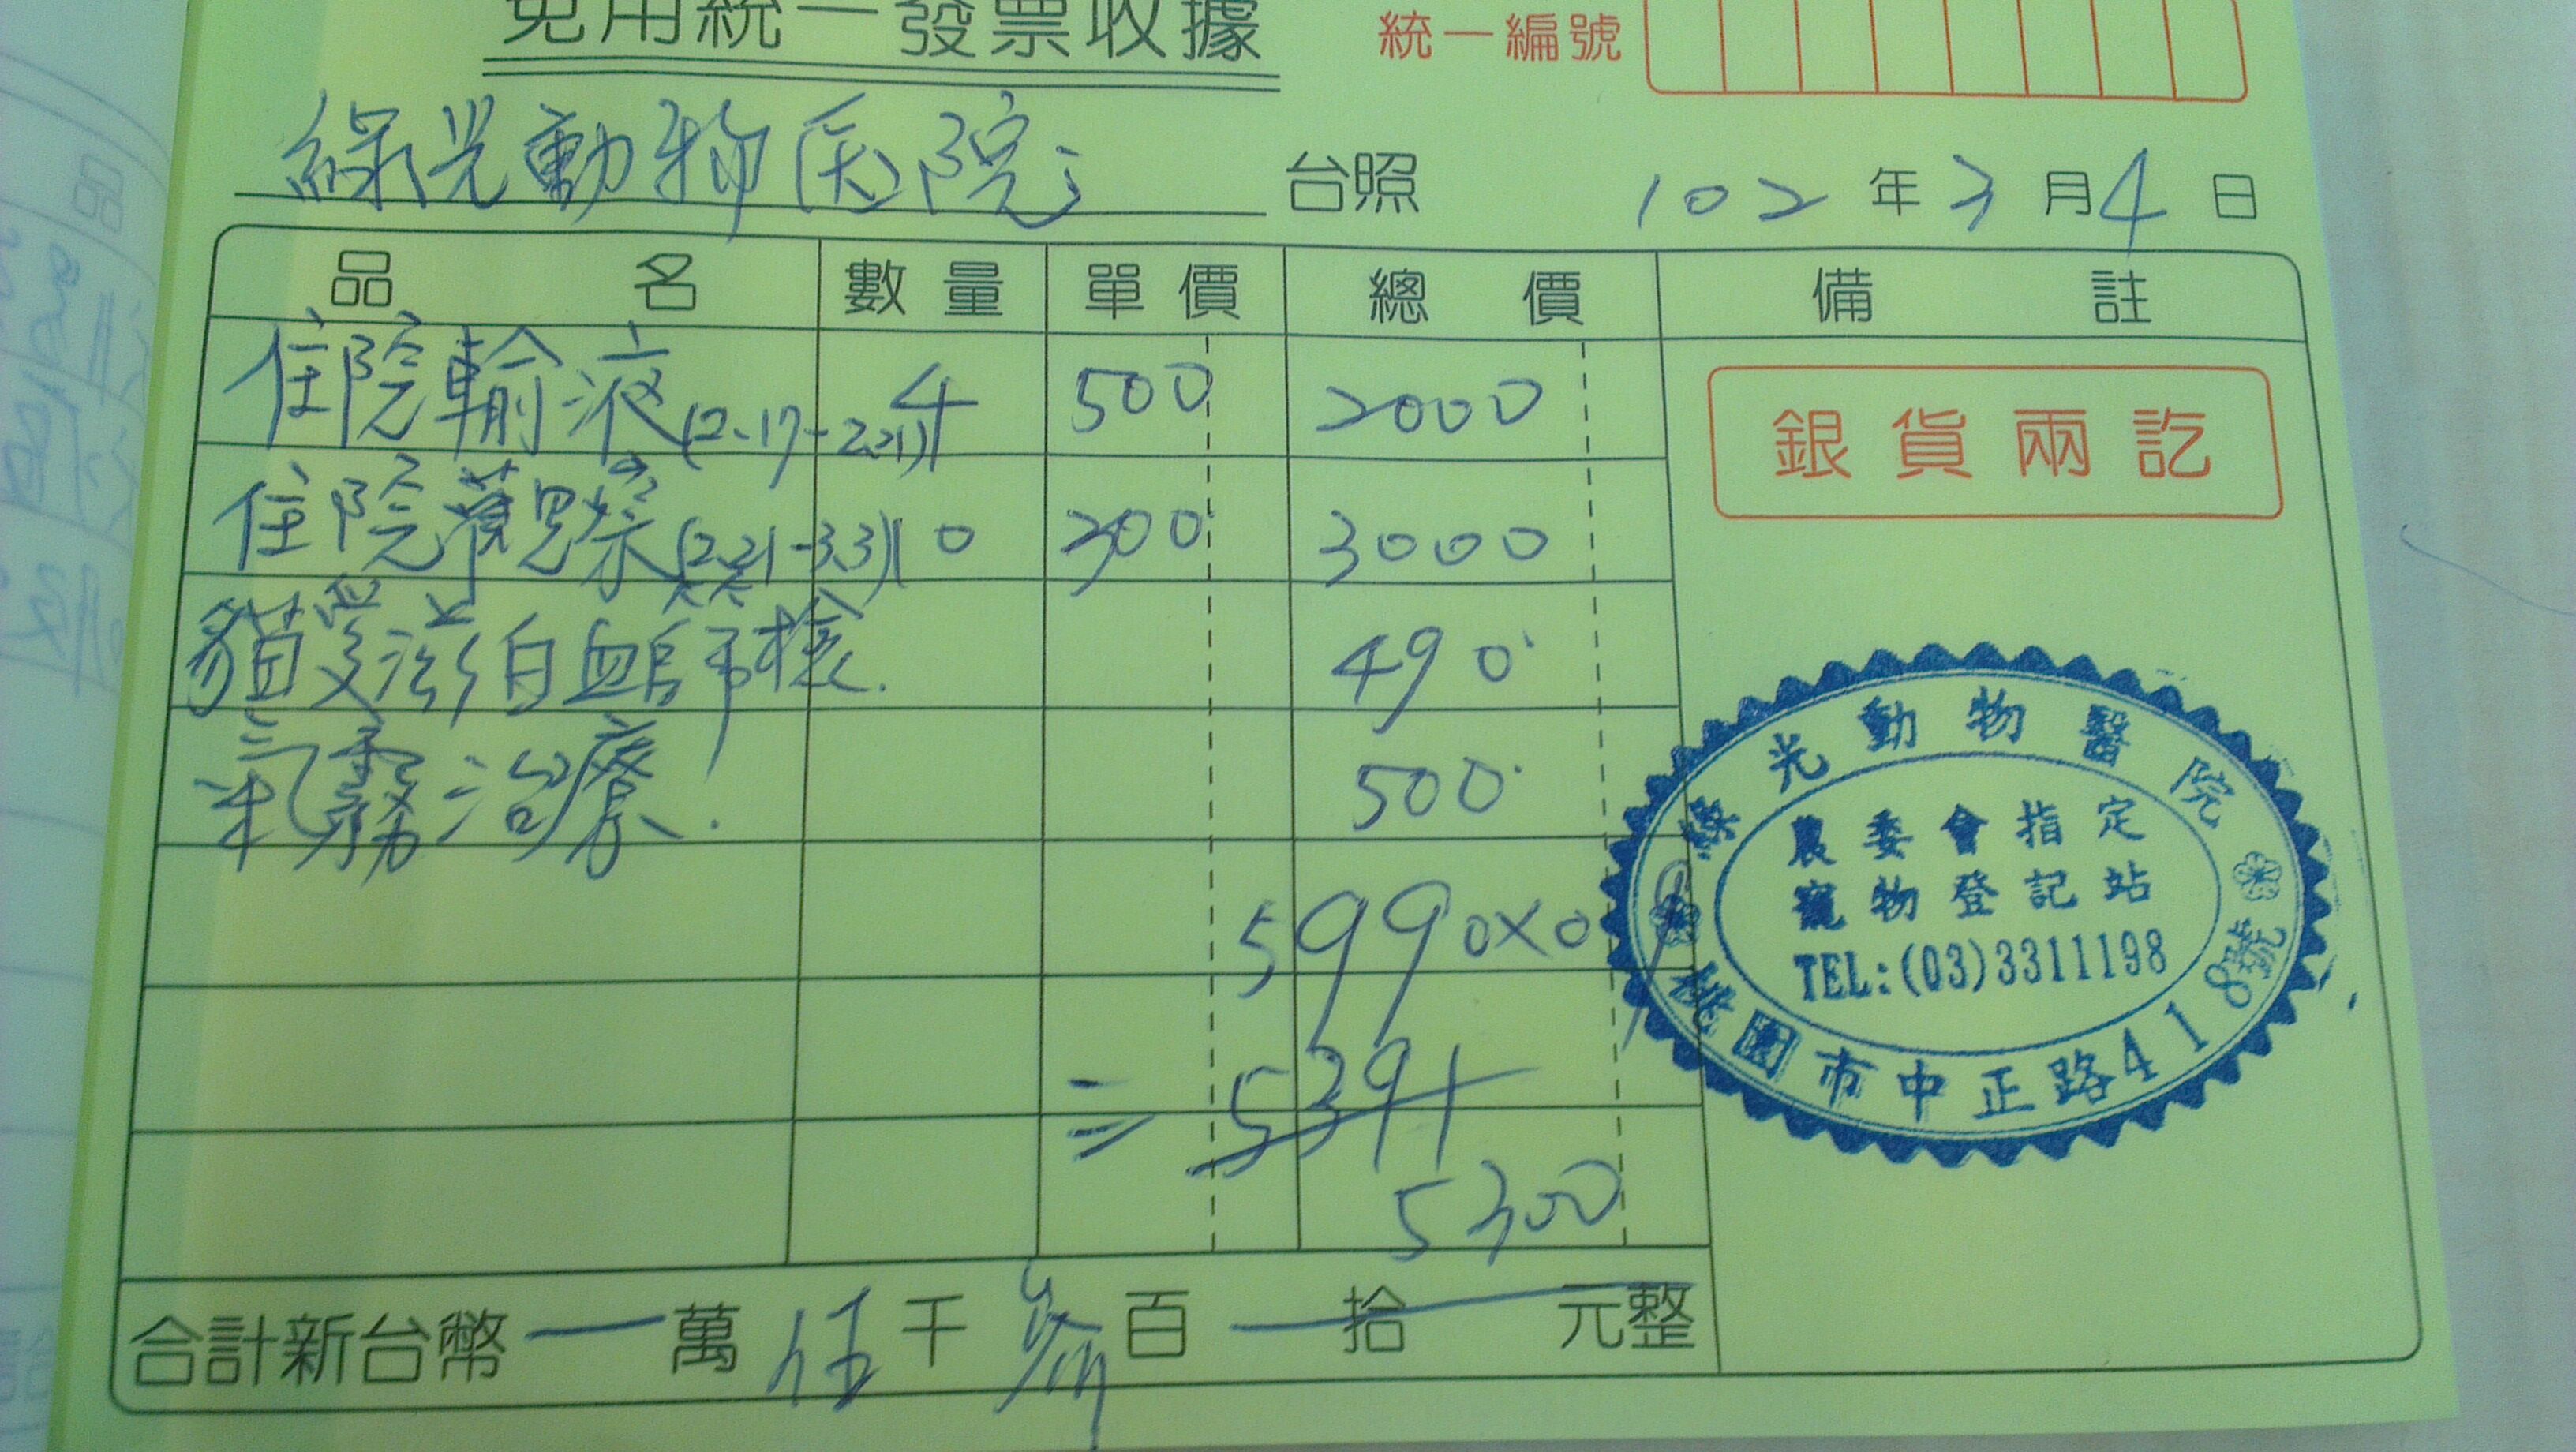 免用統一發票收據
統一編號
綠光動物医院 台照 102年3月4日
品名 數量 單價 總價 備註
住院輸液(2.17-2.21) 4 500 2000
住院觀察(2.21-3.3) 10 300 3000
貓愛滋白血篩檢. 490
氣霧治療. 500
5990×0.9
=5391
5300
合計新台幣一萬伍千參百拾元整
銀貨兩訖
綠光動物醫院
農委會指定
寵物登記站
TEL:(03)3311198
桃園市中正路418號